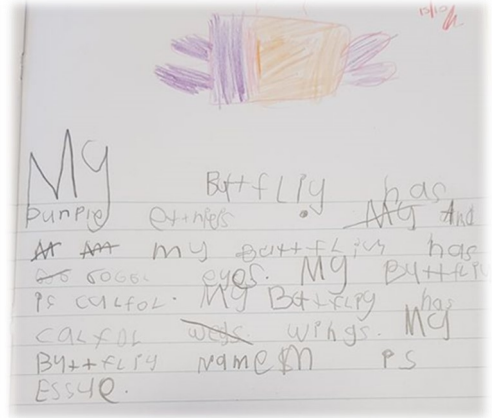 My Buttfliy has
punple My And
my Buttfliy has
eyes. My Buttfliy
is calfol. My Buttfliy has
calfol wegs. wings. My
Buttfliy name is
Essye.